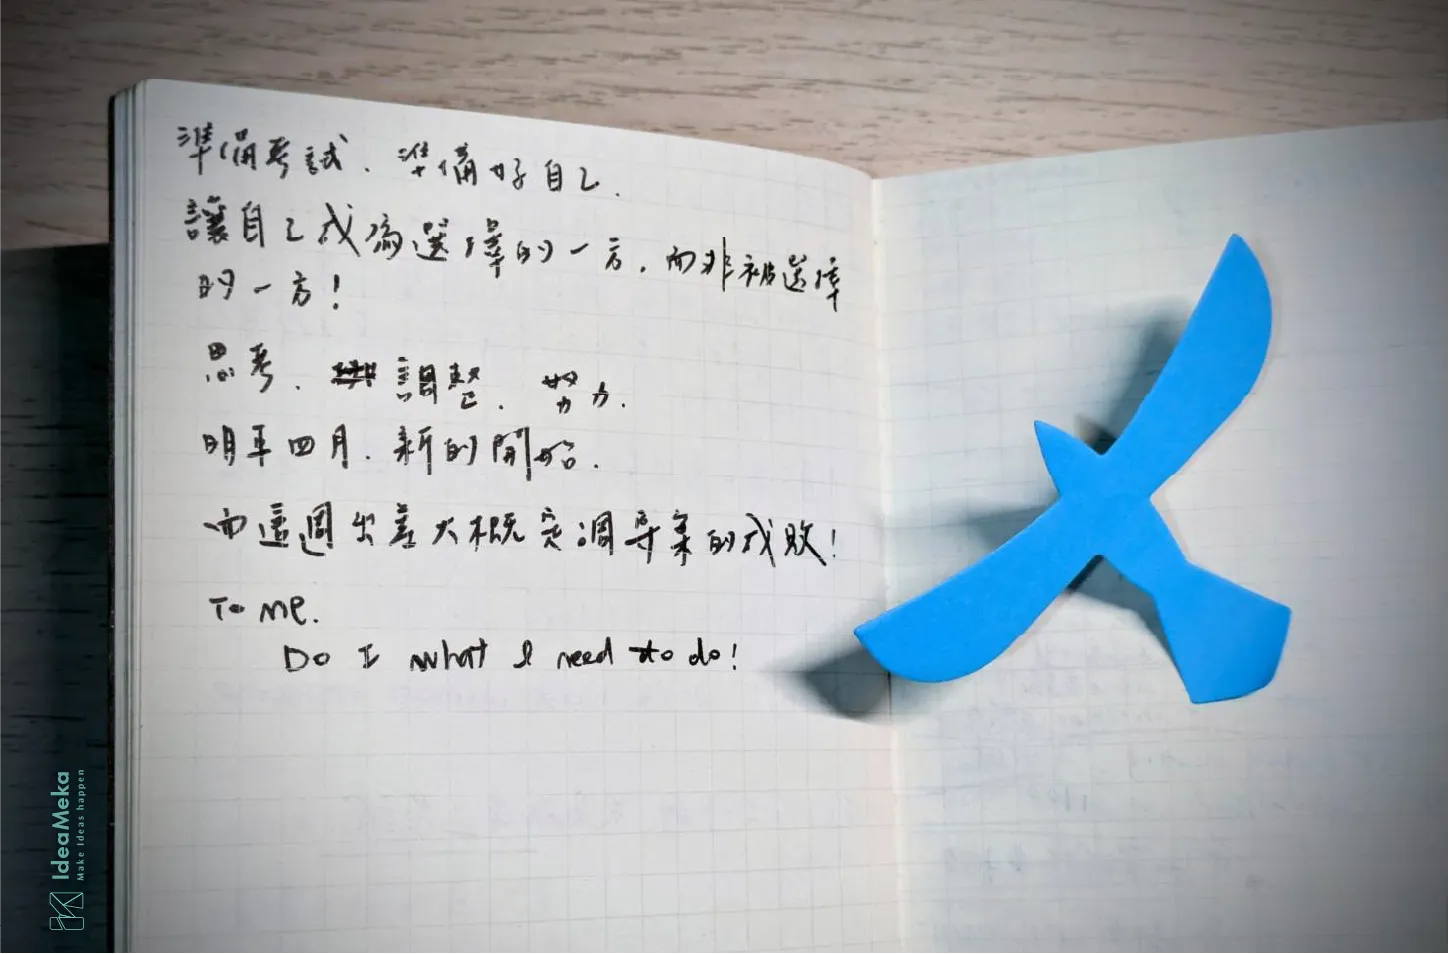 準備考試、準備好自己.
讓自己成為選擇的一方,而非被選擇
的一方!
思考、調整、努力.
明年四月、新的開始.
而這週出差大概決調專案的成敗!
To me.
Do I what I need to do!
IdeaMeka
Make Ideas happen